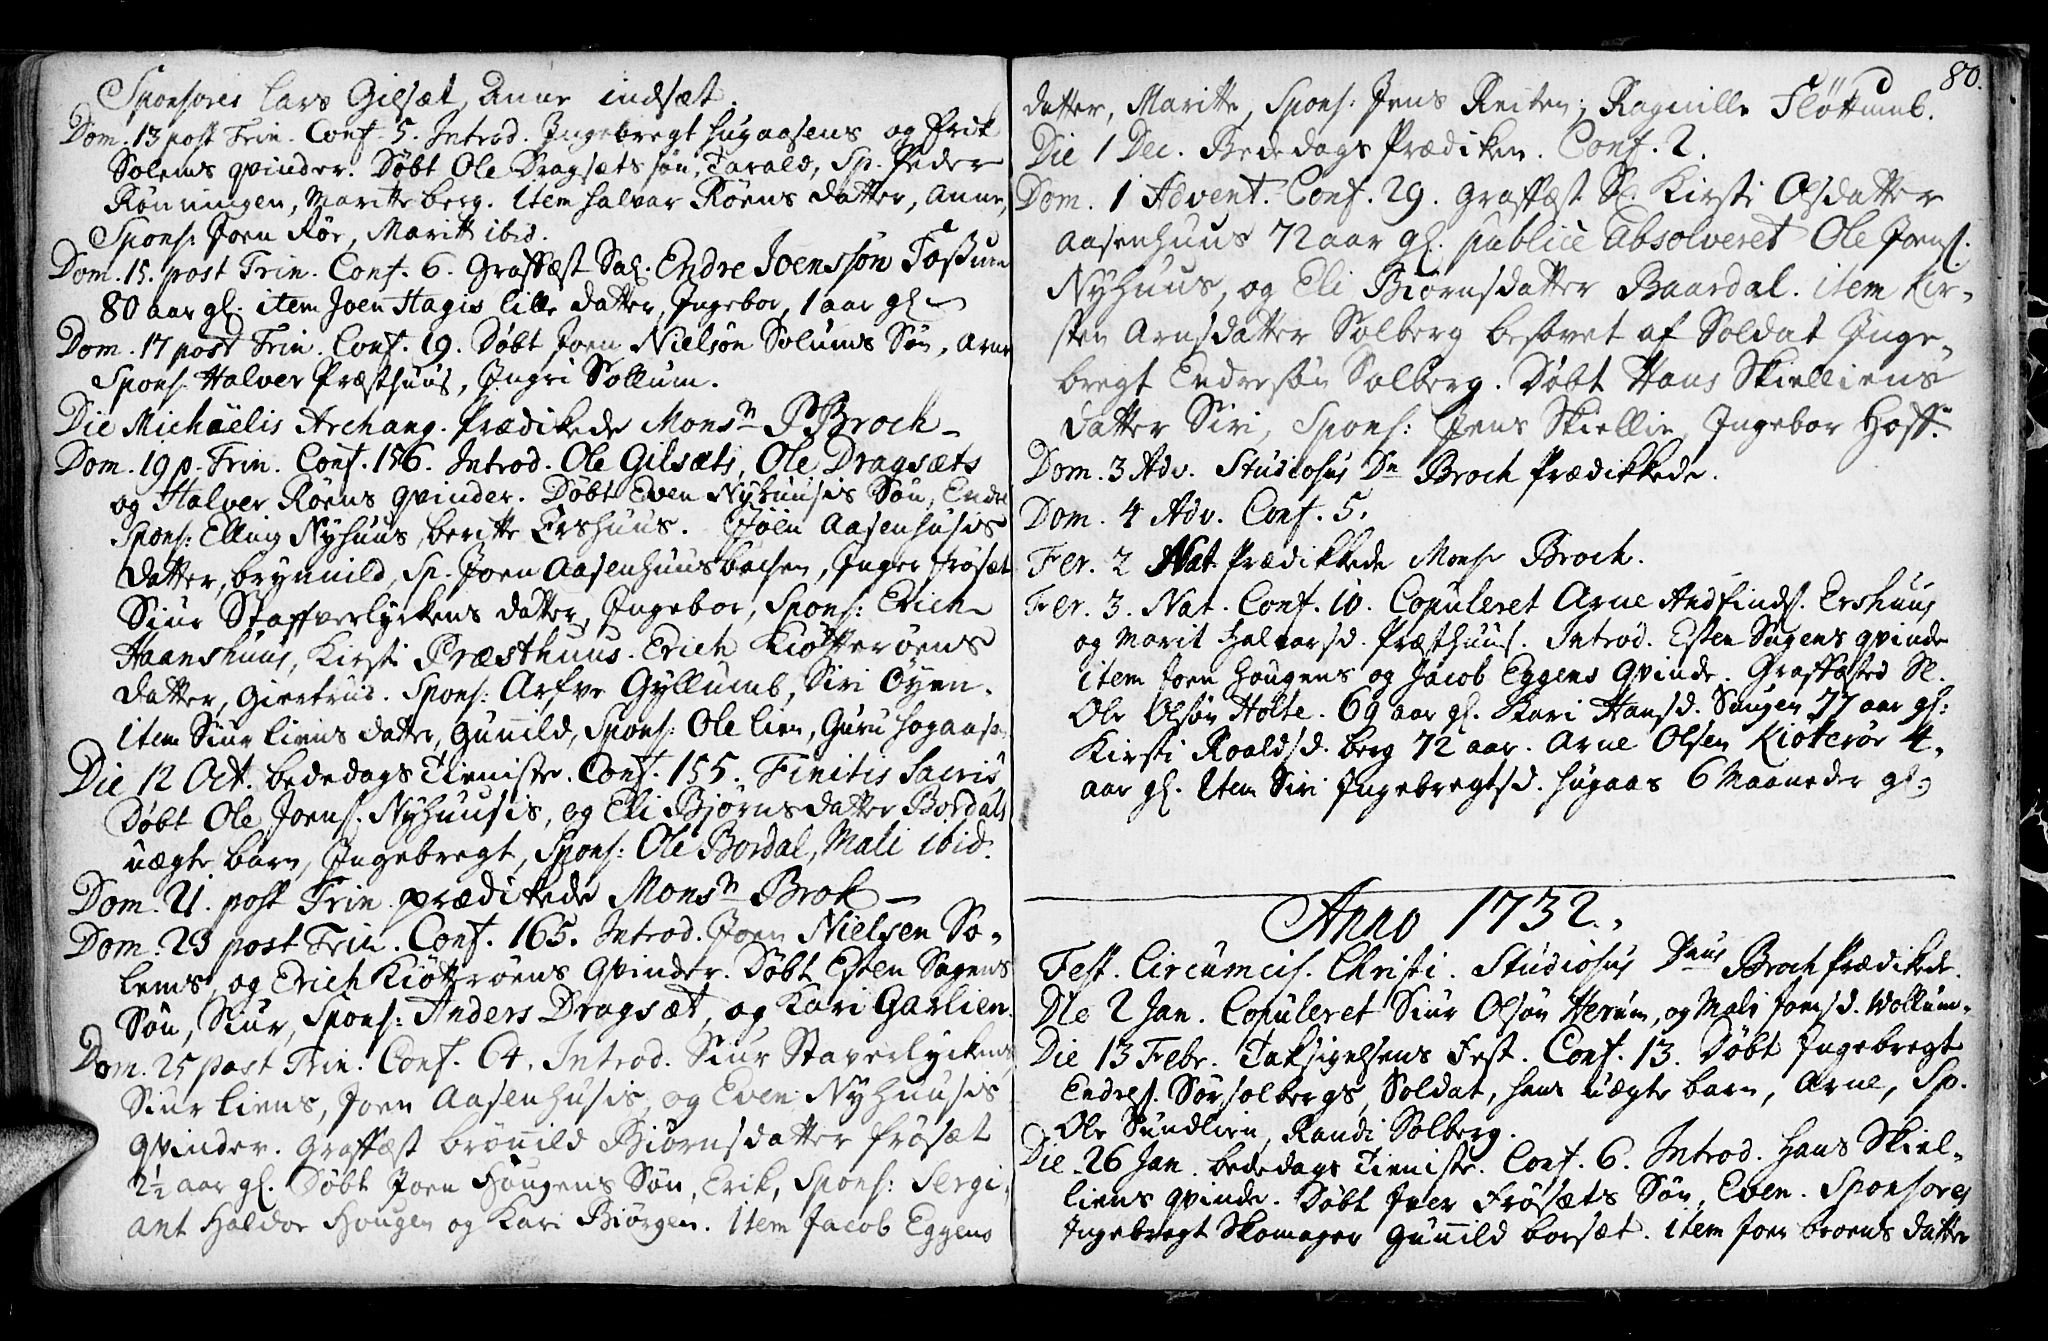 Sponsores Lars Gilsæt, Anne indsæt.
Dom. 13 post Trin. Conf. 5. Introd. Ingebregt hugaasens og Erik
Solems qvinder. Døbt Ole Dragsæts søn, Tarald, Sp. Peder
Rönningen, Maritte berg. Item halvar Röens datter, Anne,
Spons: Joen Rör, Maritt ibid.
Dom. 15. post Trin. Conf. 6. Graffæst Sal. Endre Joenssön Foßum
80 aar gl. item Joen Hagis lille datter, Ingebor, 1 aar gl
Dom. 17 post Trin. Conf. 19. Döbt Joen Nielsön Solums Sön, Arne
Spons. Halver Præsthuus, Ingri Sollum.
Die Michaëlis Archang. Prædikede Monsr P Broch
Dom. 19 p. Trin. Conf. 156. Introd. Ole Gilsæts, Ole Dragsæts
og Halver Röens qvinder. Döbt Even Nyhuusis Sön, Endre
Spons: Elling Nyhuus, beritte Ershuus. Joen Aasenhusis
datter, brynnild, Sp. Joen Aasenhuusbachen, Inger frösæt
Siur Stafverlyckens datter, Ingebor, Spons: Erich
Haanshuus, Kirsti Præsthuus. Erich Kiötterøens
datter, Giertrud. Spons: Arfve Gyllumb, Siri Öyen.
Item Siur liens datter, Gunnild, Spons: Ole lien, Guru hogaasen
Die 12 Oct. bededags Tieniste. Conf. 155. Finitis Sacris
Döbt Ole Joens. Nyhuusis, og Eli Bjørnsdatter Bordals
uægte barn, Ingebregt, Spons: Ole Bordal, Mali ibid.
Dom. 21. post Trin prædikede Monsr Brok
Dom. 23 post Trin. Conf. 165. Introd. Joen Nielsen So-
lems, og Erich Kiötterøens Qvinder. Döbt Esten Sagens
Sön, Siur, Spons: Anders Dragsæt, og Kari Garlien.
Dom. 25 post Trin. Conf. 64. Introd. Siur Staverlyckens
Siur liens, Joen Aasenhusis, og Even Nyhuusis
qvinder. Graffæst brönnild Biörnsdatter frösæt
2½ aar gl. Döbt Joen Hougens Sön, Erik, Spons: Sergi-
ant Haldor Hougen og Kari Biörgen. Item Jacob Eggens
80.
datter, Maritte, Spons: Jens Reiten, Ragnille Flöttumb.
Die 1 Dec. Bededags Prædiken. Conf. 2.
Dom. 1 Advent. Conf. 29. Graffæst Sl. Kirsti Olsdatter
Aasenhuus 72 aar gl. publice Absolveret Ole Joens.
Nyhuus, og Eli Biørnsdatter Baardal. item Kir-
sten Arnsdatter Solberg besovet af Soldat Inge-
bregt Endresön Solberg. Döbt Hans Skielliens
datter Siri, Spons: Jens Skiellie, Ingebor Hoff.
Dom. 3 Adv. Studiosus Dn Broch Prædikkede.
Dom. 4 Adv. Conf. 5.
Fer. 2 Nat. Prædikkede Monsr Broch.
Fer. 3. Nat. Conf. 10. Copuleret Arne Andfinds. Ershuus
og Marit halvarsd. Præsthuus. Introd. Esten Sugens qvinde
item Joen hougens og Jacob Eggens Qvinde. Graffæsted Sl.
Ole Olsön Holte. 69 aar gl. Kari Hansd. Saugen 77 aar gl:
Kirsti Roaldsd. berg 72 aar. Arne Olsen Kioterör 4.
aar gl. Item Siri Ingebregtsd. hugaas 6 Maaneder gl.
Anno 1732.
Fest. Circumcis. Christi. Studiosus Dnus Broch Prædikede.
Die 2 Jan. Copuleret Siur Olsön Herum, og Mali Joensd. Wollum.
Die 13 Febr. Taksigelsens Fest. Conf. 13. Döbt Ingebregt
Endres. Sörsolbergs, Soldat, hans uægte barn, Arne, Sp.
Ole Sundlien, Randi Solberg.
Die 26 Jan. bededags Tieniste. Conf. 6. Introd. Hans Skiel-
liens qvinde. Döbt Iver Frösæts Sön, Even. Sponsores
Ingebregt Skomager Gunnild borsæt. item Joen broends datter